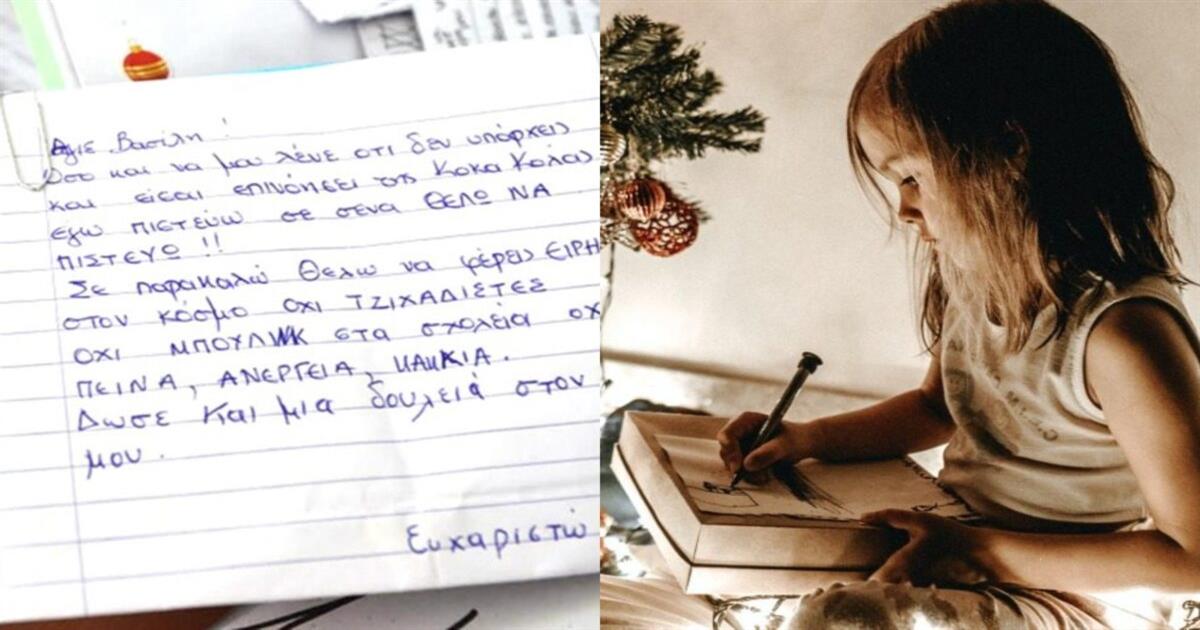 Αγιε Βασίλη!
Οσο και να μου λένε οτι δεν υπάρχεις
και είσαι επινόησει της Κοκα Κολας
εγω πιστεύω σε σενα ΘΕΛΩ ΝΑ
ΠΙΣΤΕΥΩ!!
Σε παρακαλώ Θελω να φέρεις ΕΙΡΗ
στον κόσμο οχι ΤΖΙΧΑΔΙΣΤΕΣ
ΟΧΙ ΜΠΟΥΛΙΝΚ στα σχολεία οχ
ΠΕΙΝΑ, ΑΝΕΡΓΕΙΑ, ΚΑΚΚΙΑ.
Δωσε Και μια δουλειά στον
μου.
Ευχαριστώ